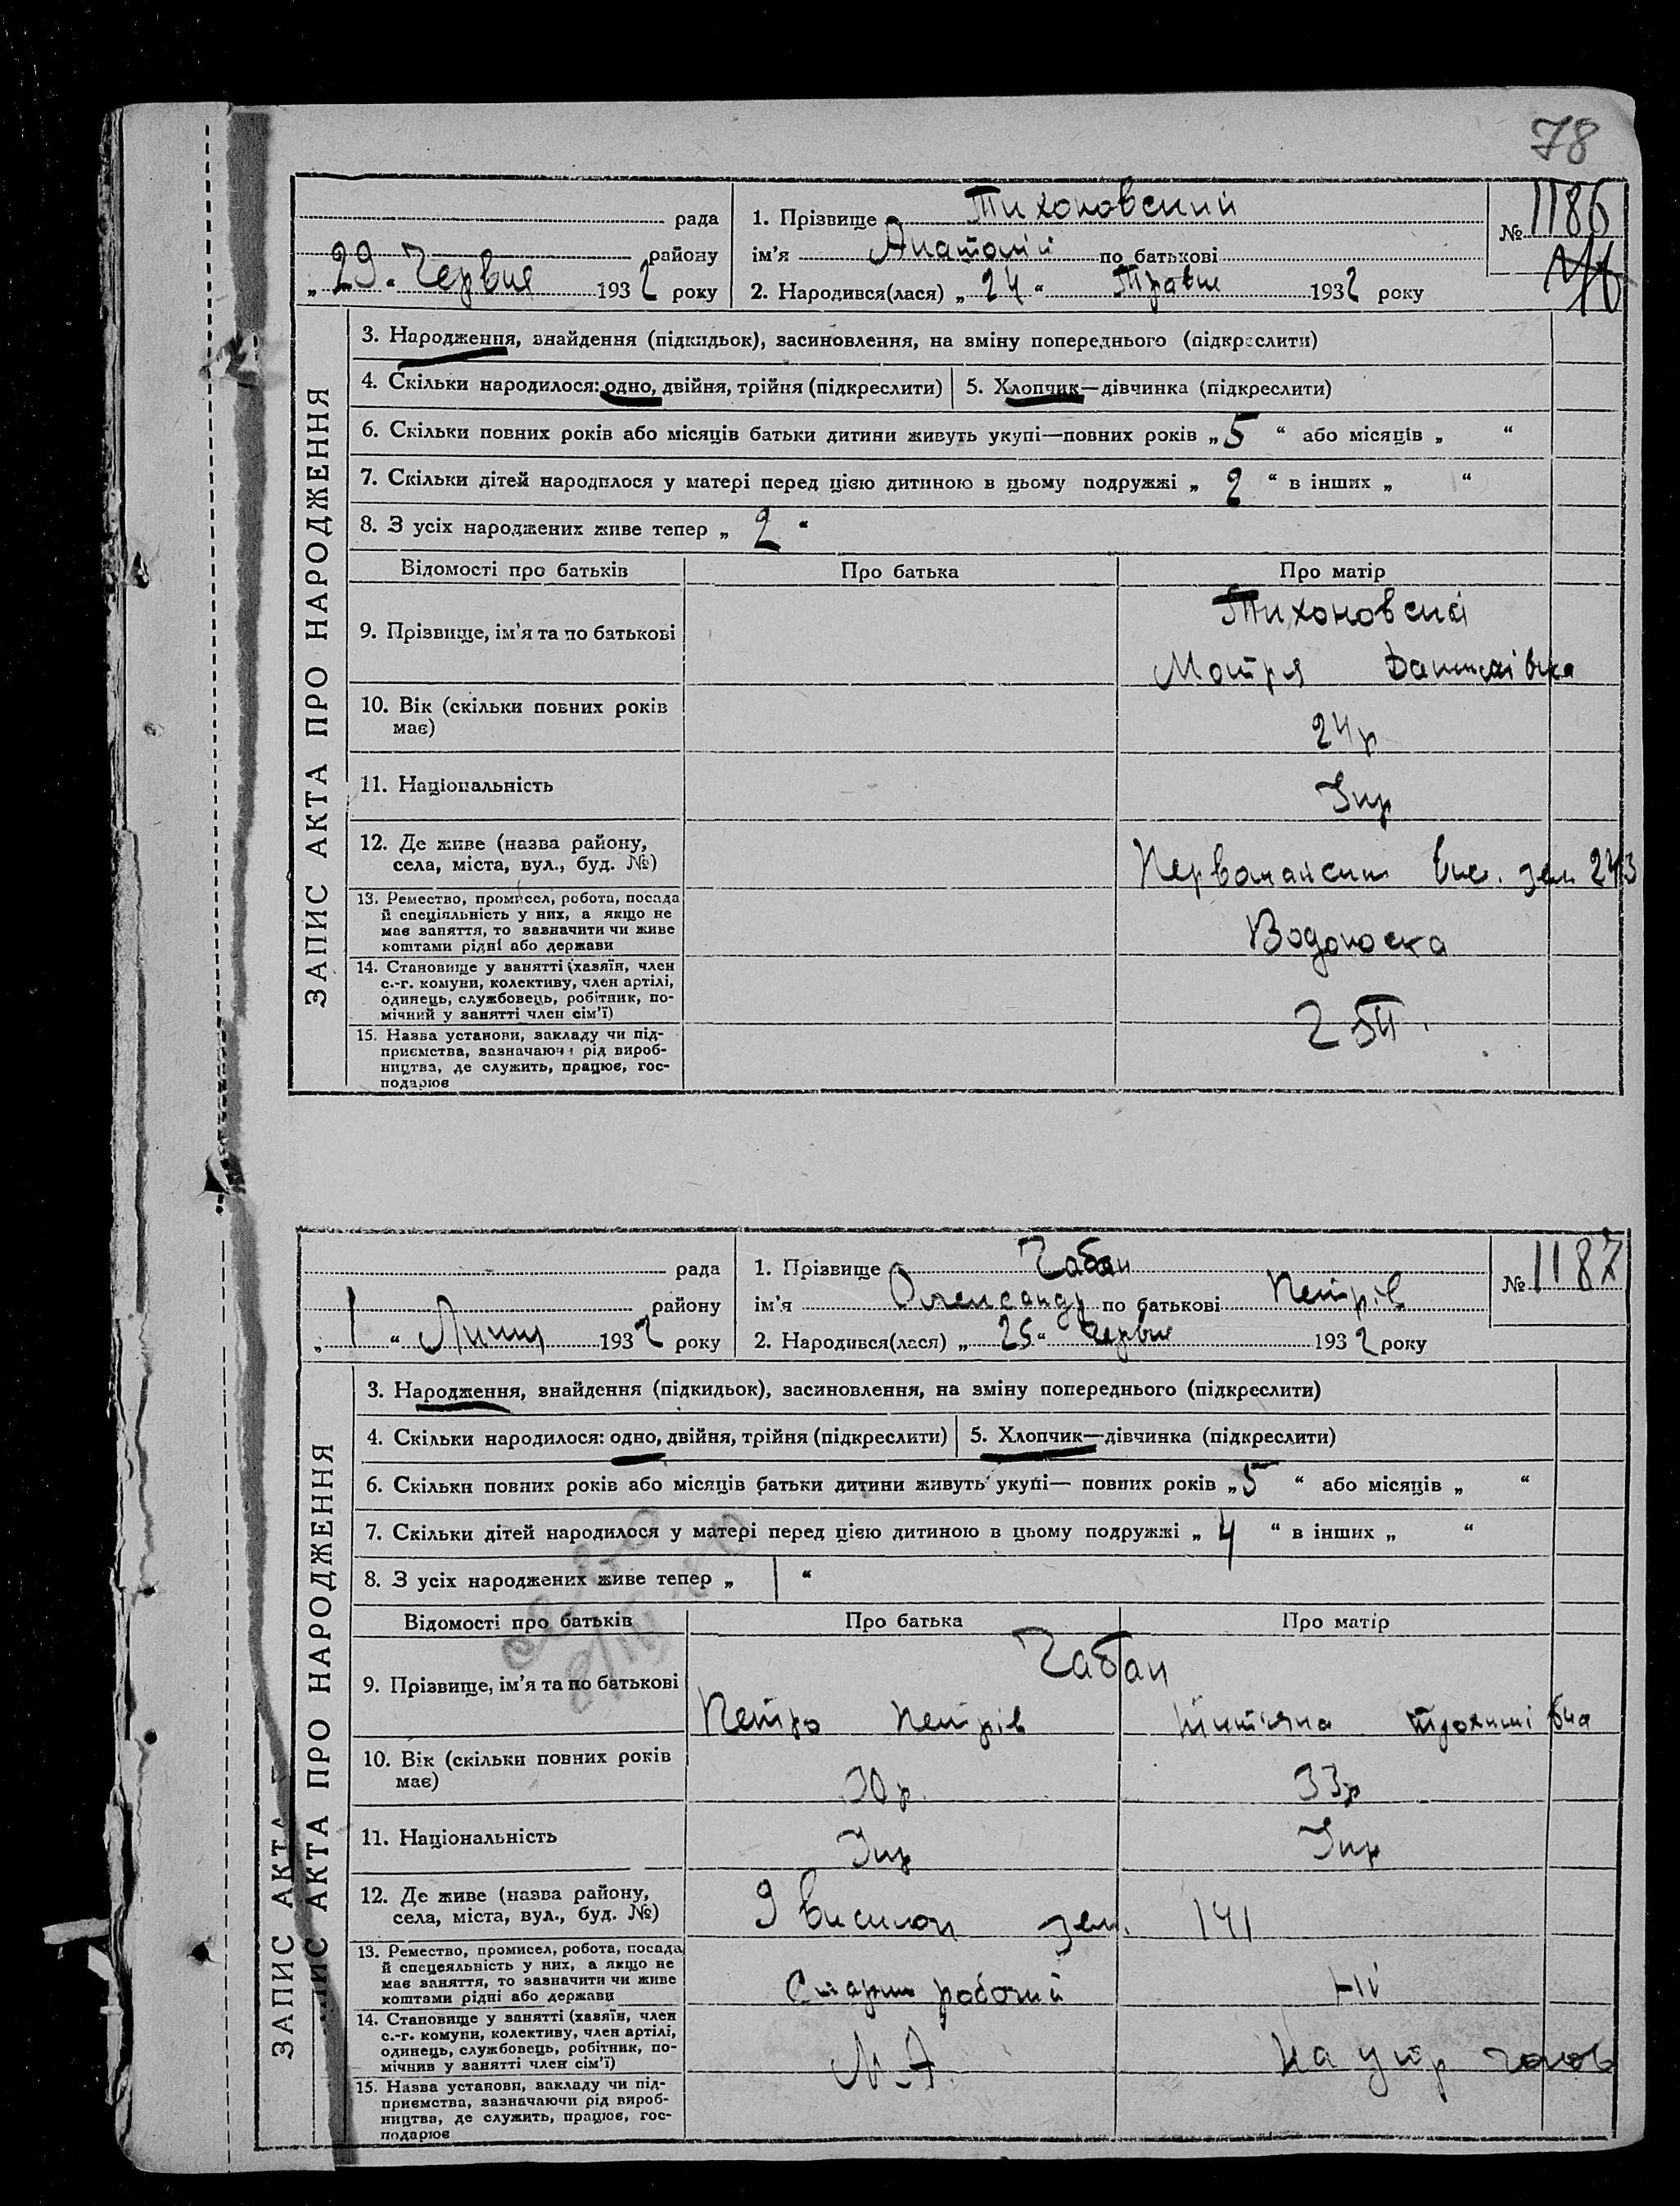 78
рада
району
„ 29 “ Червня 1932 року
1. Прізвище Тихоновский
ім’я Анатолій по батькові
2. Народився(лася) „ 24 “ Травня 1932 року
№ 1186
ЗАПИС АКТА ПРО НАРОДЖЕННЯ
3. Народження, знайдення (підкидьок), засиновлення, на зміну попереднього (підкреслити)
4. Скільки народилося: одно, двійня, трійня (підкреслити)
5. Хлопчик—дівчинка (підкреслити)
6. Скільки повних років або місяців батьки дитини живуть укупі—повних років „ 5 “ або місяців „ “
7. Скільки дітей народилося у матері перед цією дитиною в цьому подружжі „ 2 “ в інших „ “
8. З усіх народжених живе тепер „ 2 “
Відомості про батьків Про батька Про матір
9. Прізвище, ім’я та по батькові
Тихоновскі
Мотря Данилівна
10. Вік (скільки повних років
має)
24р
11. Національність
Укр
12. Де живе (назва району,
села, міста, вул., буд. №)
Первомайский Вис. зем 243
13. Ремество, промисел, робота, посада
й спеціяльність у них, а якщо не
має заняття, то зазначити чи живе
коштами рідні або держави
Водоноска
14. Становище у занятті (хазяїн, член
с.-г. комуни, колективу, член артілі,
одинець, службовець, робітник, по-
мічний у занятті член сім’ї)
15. Назва установи, закладу чи під-
приємства, зазначаючи рід вироб-
ництва, де служить, працює, гос-
подарює
рада
району
„ 1 “ Липня 1932 року
1. Прізвище Чабан
ім’я Олександр по батькові Петрів
2. Народився(лася) „ 25 “ Червня 1932 року
№ 1187
ЗАПИС АКТА ПРО НАРОДЖЕННЯ
ЗАПИС АКТА
3. Народження, знайдення (підкидьок), засиновлення, на зміну попереднього (підкреслити)
4. Скільки народилося: одно, двійня, трійня (підкреслити)
5. Хлопчик—дівчинка (підкреслити)
6. Скільки повних років або місяців батьки дитини живуть укупі— повних років „ 5 “ або місяців „ “
7. Скільки дітей народилося у матері перед цією дитиною в цьому подружжі „ 4 “ в інших „ “
8. З усіх народжених живе тепер „ 1 “
Відомості про батьків Про батька Про матір
Чабан
9. Прізвище, ім’я та по батькові
Петро Петрів
Титяна Трохимівна
10. Вік (скільки повних років
має)
30р. 33р
11. Національність
Укр Укр
12. Де живе (назва району,
села, міста, вул., буд. №)
9 висилок зем. 141
13. Ремество, промисел, робота, посада
й спецеяльність у них, а якщо не
має заняття, то зазначити чи живе
коштами рідні або держави
Старш робочий
14. Становище у занятті (хазяїн, член
с.-г. комуни, колективу, член артілі,
одинець, службовець, робітник, по-
мічнив у занятті член сім’ї)
На утр чолов
15. Назва установи, закладу чи під-
приємства, зазначаючи рід вироб-
ництва, де служить, працює, гос-
подарює